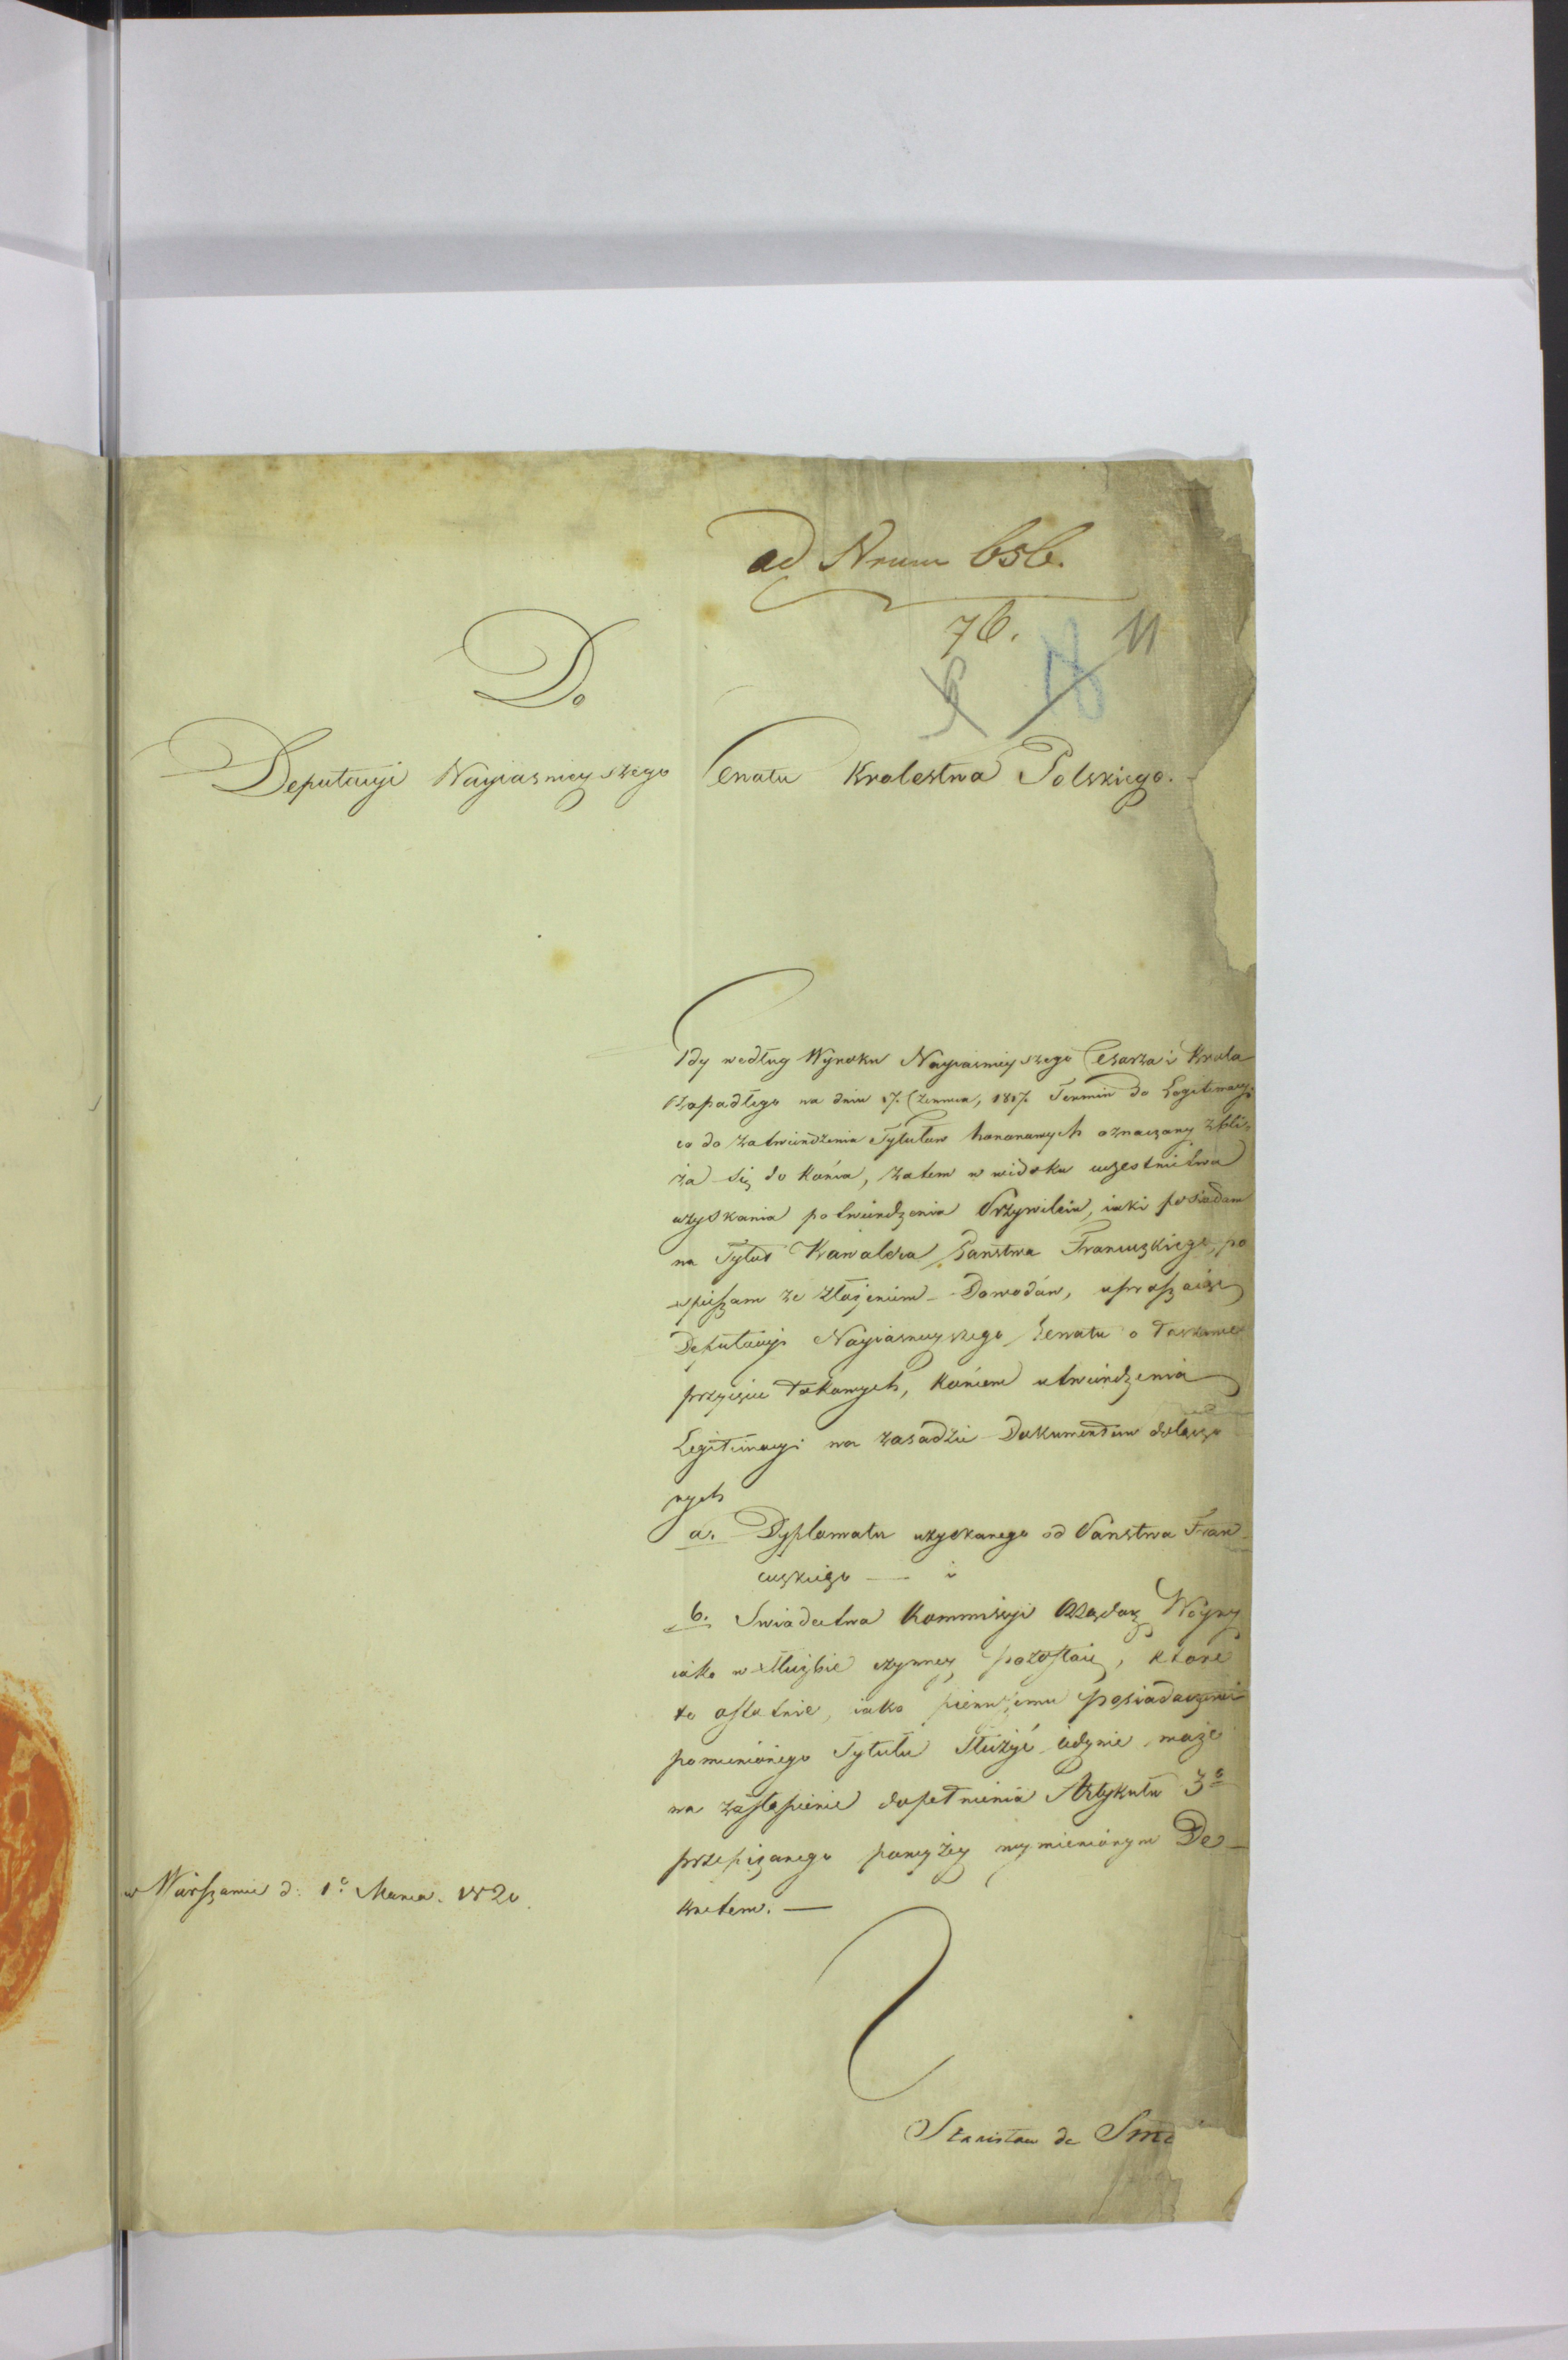 ad Nrum 656.
76.
11
Do
Deputacyi Nayiasnieyszego Senatu Krolestwa Polskiego.
Gdy według Wyroku Nayiasnieyszego Cesarza i Krola
zapadłego na dniu 17. Czerwca, 1817. Termin do Legitimacyi
co do zatwierdzenia Tytułow honorowych oznaczony zbli-
ża się do końca, zatem w widoku uczestnictwa
uzyskania potwierdzenia Przywileiu, iaki posiadam
na Tytuł Kawalera Państwa Francuzkiego, po
spieszam ze złożeniem Dowodów, upraszaiąc
Deputacyi Nayiasnieyszego Senatu o łaskawe
przyięcie takowych, końcem utwierdzenia
Legitimacyi na zasadzie Dokumentów dołączo
nych
a. Dyplomatu uzyskanego od Państwa Fran-
cuzkiego — i
b. Swiadectwa Kommissyi Rządow: Woyny
iako w służbie czynney pozostaię, ktore
to ostatnie, iako pierwszemu posiadaczowi
pomienionego Tytułu służyć iedynie może
na zastąpienie dopełnienia Artykułu 3º
przepisanego powyżey wymienionym De-
kretem. —
w Warszawie d: 1º Marca. 1820.
Stanisław de